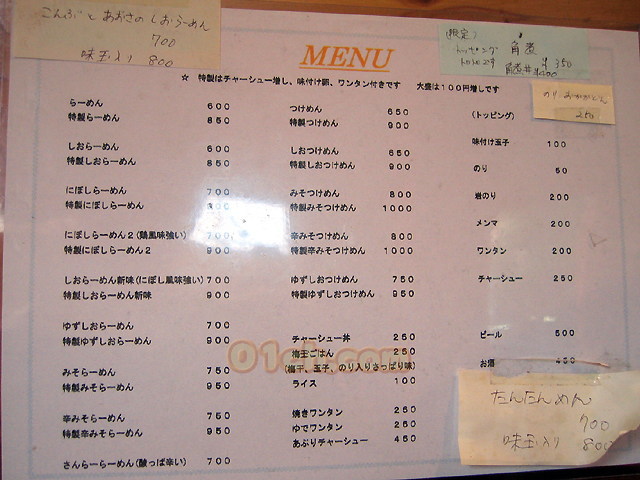 こんぶとあおさのしおらーめん
700
味玉入り 800
(限定)
トッピング 角煮
¥350
MENU
☆ 特製はチャーシュー増し、味付け卵、ワンタン付きです 大盛は100円増しです
らーめん 600
特製らーめん 850
しおらーめん 600
特製しおらーめん 850
にぼしらーめん 700
特製にぼしらーめん
にぼしらーめん2(鶏風味強い) 700
特製にぼしらーめん2 900
しおらーめん新味(にぼし風味強い) 700
特製しおらーめん新味 900
ゆずしおらーめん 700
特製ゆずしおらーめん 900
みそらーめん 750
特製みそらーめん 950
辛みそらーめん 750
特製辛みそらーめん 950
さんらーらーめん(酸っぱ辛い) 700
つけめん 650
特製つけめん 900
しおつけめん 650
特製しおつけめん 900
みそつけめん 800
特製みそつけめん 1000
辛みそつけめん 800
特製辛みそつけめん 1000
ゆずしおつけめん 750
特製ゆずしおつけめん 950
チャーシュー丼 250
梅玉ごはん 250
(梅干、玉子、のり入りさっぱり味)
ライス 100
焼きワンタン 250
ゆでワンタン 250
あぶりチャーシュー 450
250
(トッピング)
味付け玉子 100
のり 50
岩のり 200
メンマ 200
ワンタン 200
チャーシュー 250
ビール 500
お酒
たんたんめん
700
味玉入り 800